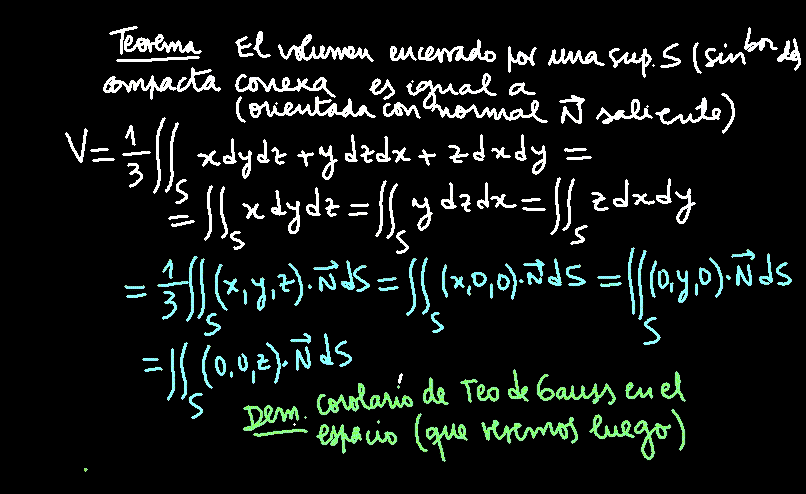 Teorema El volumen encerrado por una sup. S (sin borde)
compacta conexa es igual a
(orientada con normal N⃗ saliente)
V = 1/3 ∬_S x dy dz + y dz dx + z dx dy =
= ∬_S x dy dz = ∬_S y dz dx = ∬_S z dx dy
= 1/3 ∬_S (x, y, z) · N⃗ dS = ∬_S (x, 0, 0) · N⃗ dS = ∬_S (0, y, 0) · N⃗ dS
= ∬_S (0, 0, z) · N⃗ dS
Dem. corolario de Teo de Gauss en el
espacio (que veremos luego)